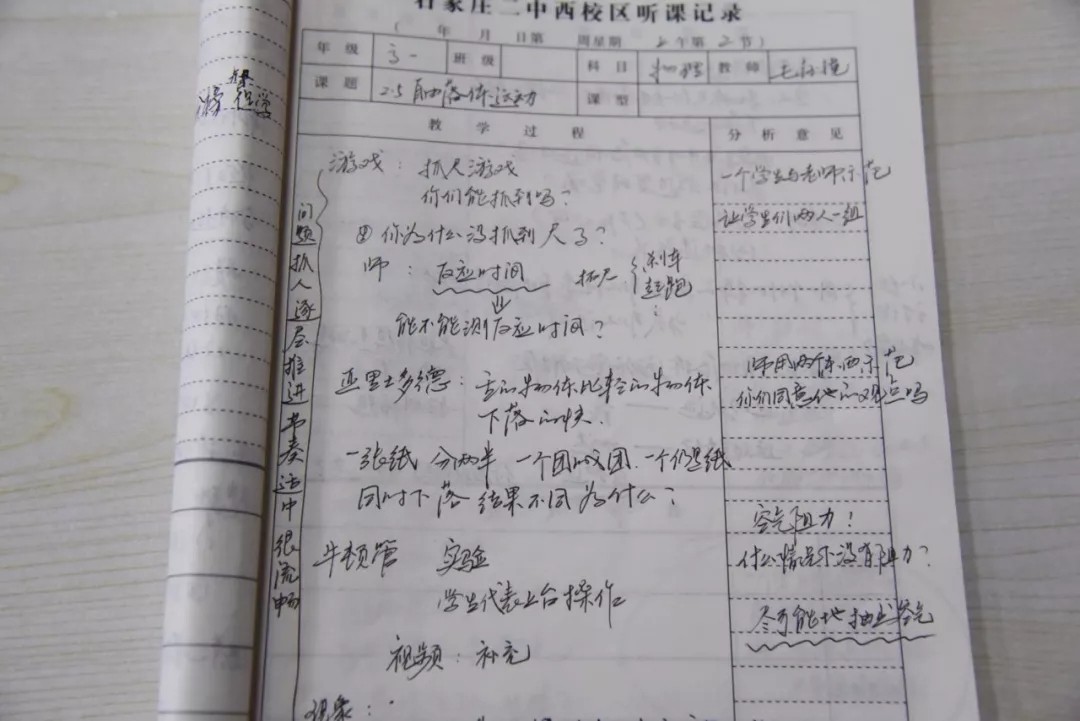 石家庄二中西校区听课记录
( 年 月 日第 周星期 上午第2节)
年级 高一 班级 科目 物理 教师
课题 2.5 自由落体运动 课型
教学过程 分析意见
游戏: 抓尺游戏 一个学生与老师示范
你们能抓到吗? 让学生们两人一组
② 你为什么没抓到尺子?
师: 反应时间 抓尺 刹车
起跑
能不能测反应时间?
师用两个东西示范
亚里士多德: 重的物体比轻的物体 你们同意他的观点吗
下落的快.
一张纸 分两半 一个团成团.一个仍是纸
同时下落 结果不同 为什么?
空气阻力!
牛顿管 实验 什么情况下没有阻力?
学生代表上台操作
尽可能地抽出空气
视频: 补充
现象:
问题抓人逐层推进节奏适中很流畅